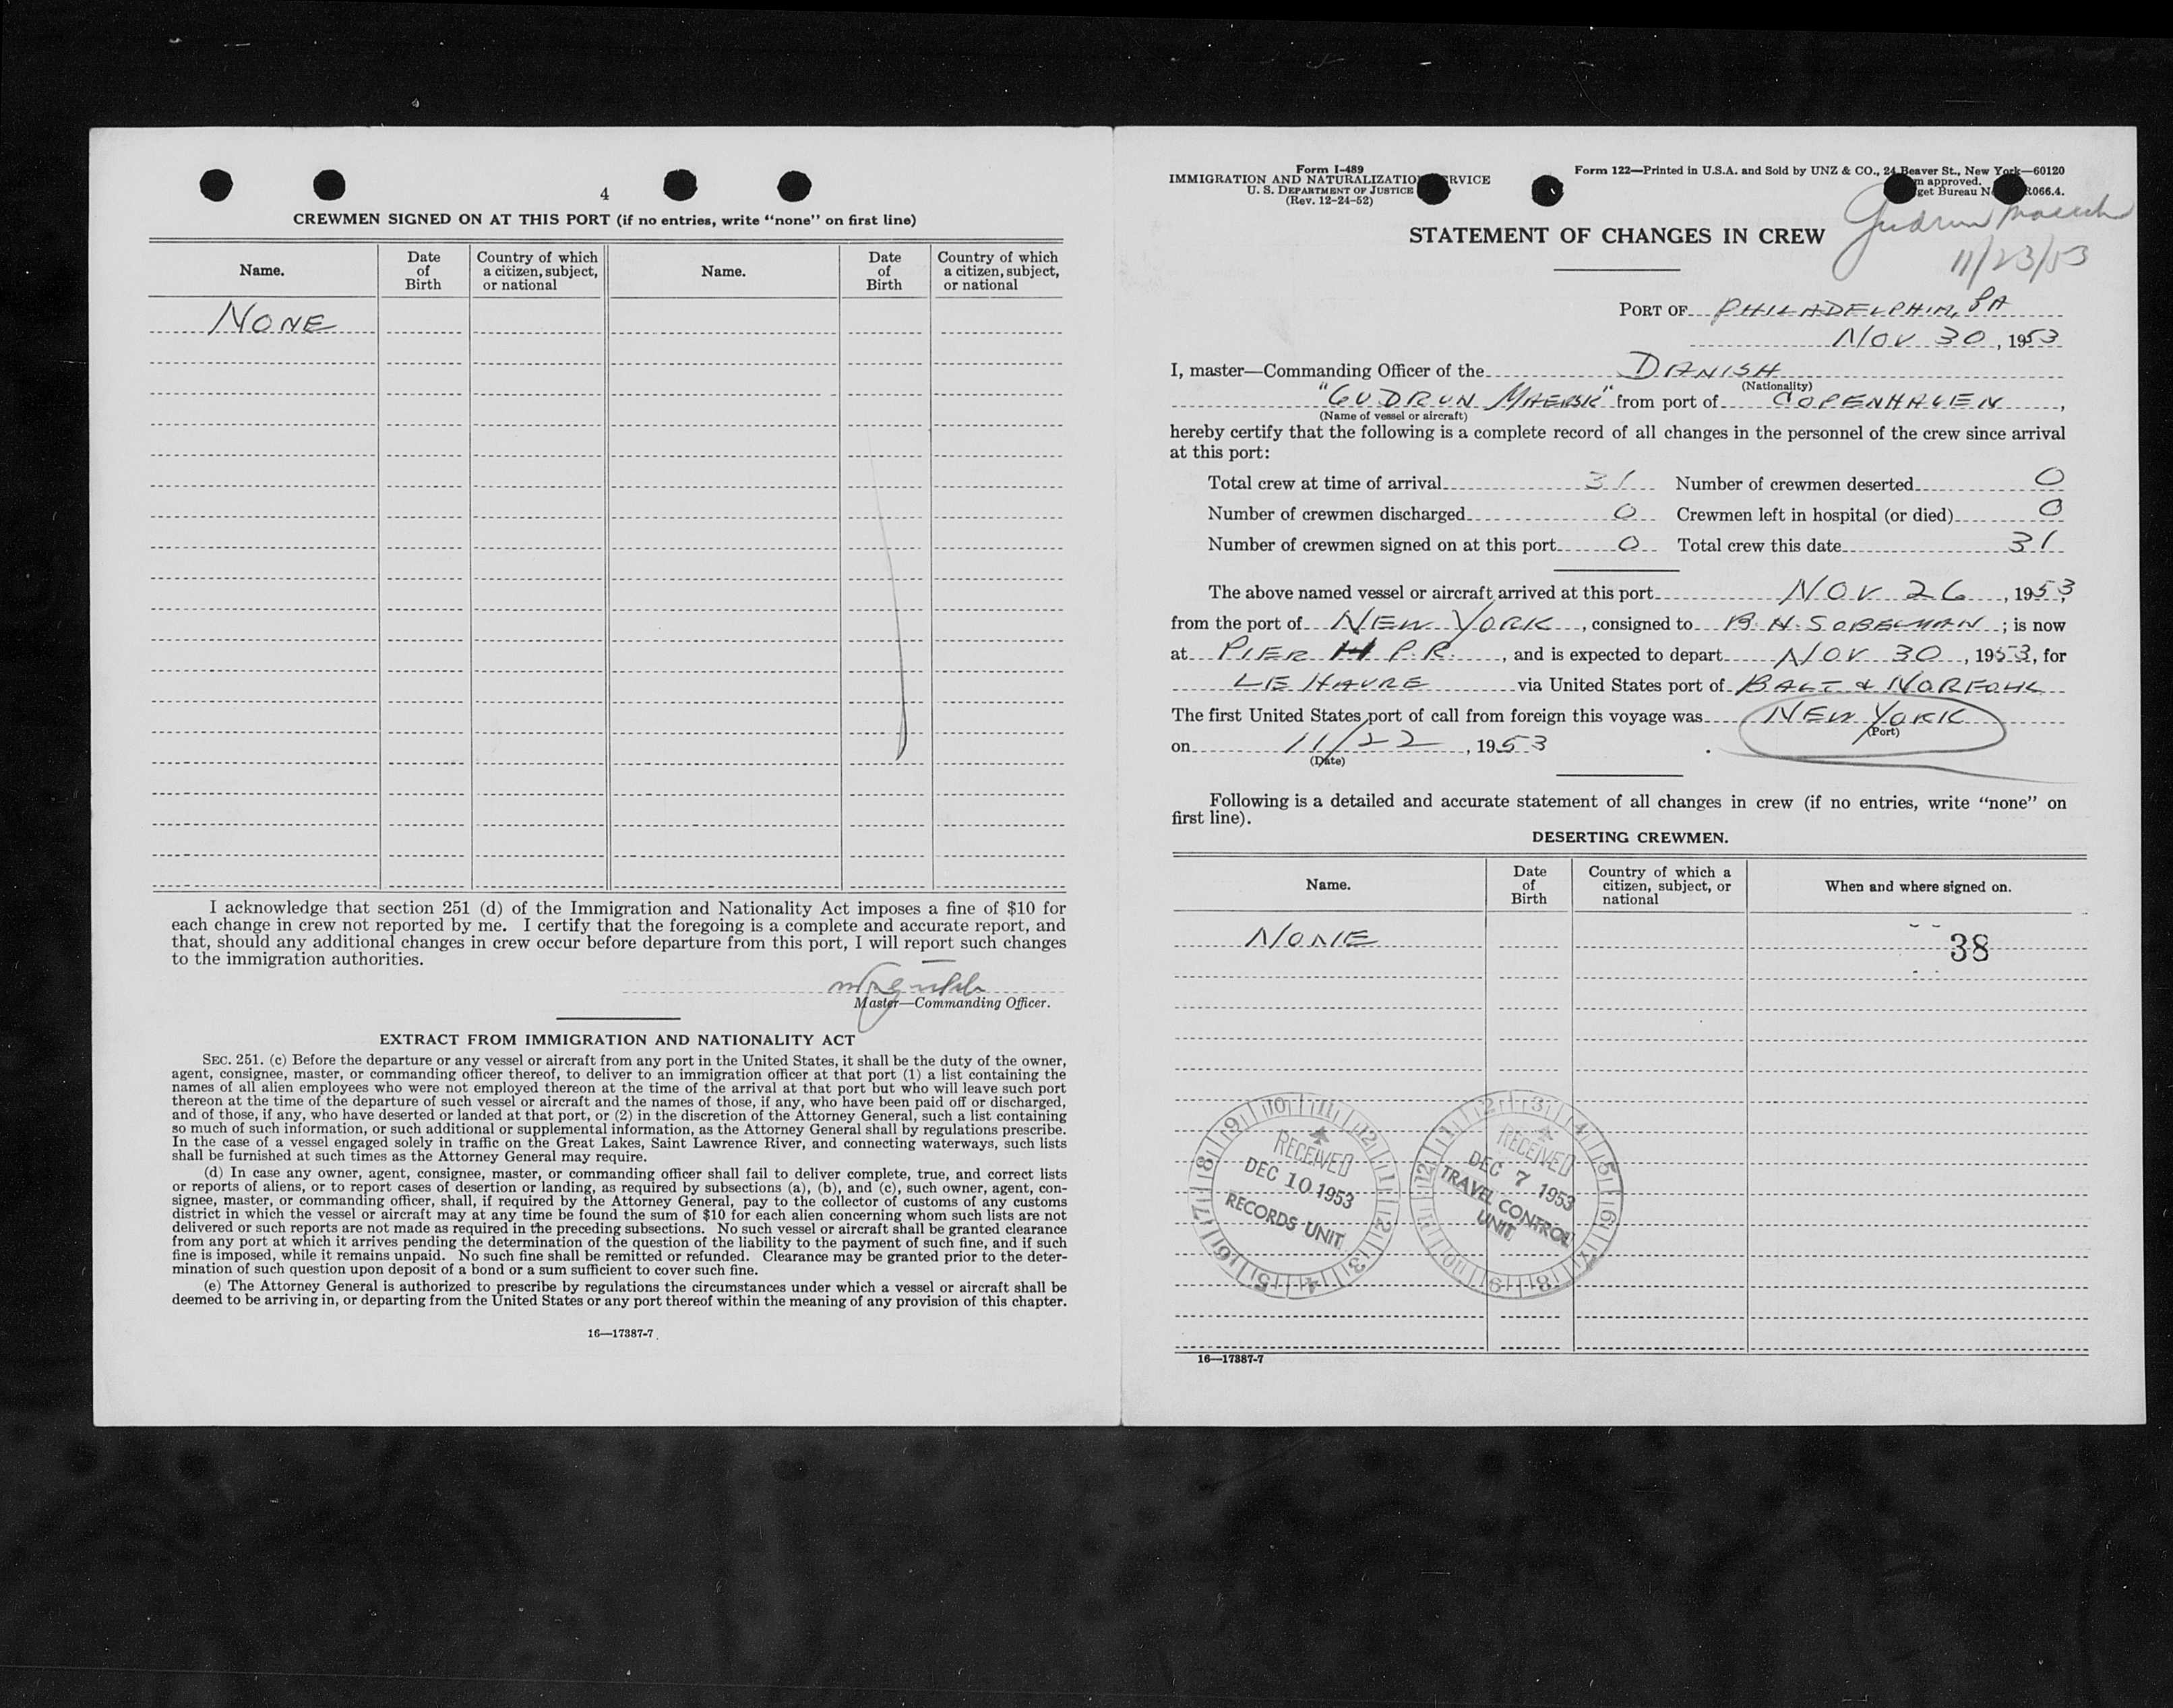 4
CREWMEN SIGNED ON AT THIS PORT (if no entries, write “none” on first line)
Name. Date of Birth Country of which a citizen, subject, or national Name. Date of Birth Country of which a citizen, subject, or national
NONE
I acknowledge that section 251 (d) of the Immigration and Nationality Act imposes a fine of $10 for
each change in crew not reported by me. I certify that the foregoing is a complete and accurate report, and
that, should any additional changes in crew occur before departure from this port, I will report such changes
to the immigration authorities.
Master—Commanding Officer.
EXTRACT FROM IMMIGRATION AND NATIONALITY ACT
SEC. 251. (c) Before the departure or any vessel or aircraft from any port in the United States, it shall be the duty of the owner,
agent, consignee, master, or commanding officer thereof, to deliver to an immigration officer at that port (1) a list containing the
names of all alien employees who were not employed thereon at the time of the arrival at that port but who will leave such port
thereon at the time of the departure of such vessel or aircraft and the names of those, if any, who have been paid off or discharged,
and of those, if any, who have deserted or landed at that port, or (2) in the discretion of the Attorney General, such a list containing
so much of such information, or such additional or supplemental information, as the Attorney General shall by regulations prescribe.
In the case of a vessel engaged solely in traffic on the Great Lakes, Saint Lawrence River, and connecting waterways, such lists
shall be furnished at such times as the Attorney General may require.
(d) In case any owner, agent, consignee, master, or commanding officer shall fail to deliver complete, true, and correct lists
or reports of aliens, or to report cases of desertion or landing, as required by subsections (a), (b), and (c), such owner, agent, con-
signee, master, or commanding officer, shall, if required by the Attorney General, pay to the collector of customs of any customs
district in which the vessel or aircraft may at any time be found the sum of $10 for each alien concerning whom such lists are not
delivered or such reports are not made as required in the preceding subsections. No such vessel or aircraft shall be granted clearance
from any port at which it arrives pending the determination of the question of the liability to the payment of such fine, and if such
fine is imposed, while it remains unpaid. No such fine shall be remitted or refunded. Clearance may be granted prior to the deter-
mination of such question upon deposit of a bond or a sum sufficient to cover such fine.
(e) The Attorney General is authorized to prescribe by regulations the circumstances under which a vessel or aircraft shall be
deemed to be arriving in, or departing from the United States or any port thereof within the meaning of any provision of this chapter.
16—17387-7
Form I-489
IMMIGRATION AND NATURALIZATIO RVICE
U. S. DEPARTMENT OF JUSTICE
(Rev. 12-24-52)
Form 122—Printed in U.S.A. and Sold by UNZ & CO., 24 Beaver St., New York—60120
m approved.
get Bureau N R066.4.
Gudrun Maersk
11/23/53
STATEMENT OF CHANGES IN CREW
PORT OF PHILADELPHIA, PA
NOV 30, 1953
I, master—Commanding Officer of the DANISH
(Nationality)
"GUDRUN MAERSK" from port of COPENHAGEN,
(Name of vessel or aircraft)
hereby certify that the following is a complete record of all changes in the personnel of the crew since arrival
at this port:
Total crew at time of arrival 31 Number of crewmen deserted 0
Number of crewmen discharged 0 Crewmen left in hospital (or died) 0
Number of crewmen signed on at this port 0 Total crew this date 31
The above named vessel or aircraft arrived at this port NOV 26, 1953,
from the port of NEW YORK, consigned to B. H. SOBELMAN; is now
at PIER 14 P.R., and is expected to depart NOV 30, 1953, for
LE HAVRE via United States port of BALT & NORFOLK
The first United States port of call from foreign this voyage was NEW YORK
(Port)
on 11/22, 1953.
(Date)
Following is a detailed and accurate statement of all changes in crew (if no entries, write “none” on
first line).
DESERTING CREWMEN.
Name. Date of Birth Country of which a citizen, subject, or national When and where signed on.
NONE 38
RECEIVED
DEC 10 1953
RECORDS UNIT
RECEIVED
DEC 7 1953
TRAVEL CONTROL
UNIT
16—17387-7